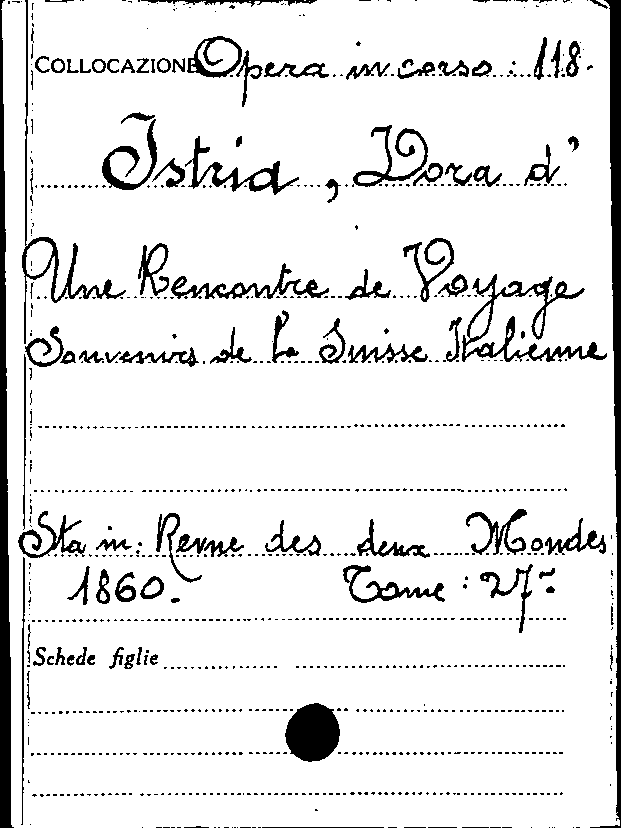 COLLOCAZIONE Opera in corso : 118.
Istria, Dora d'
Une Rencontre de Voyage
Souvenirs de la Suisse Italienne
Sta in: Revue des deux Mondes
1860. Tome : 27-
Schede figlie